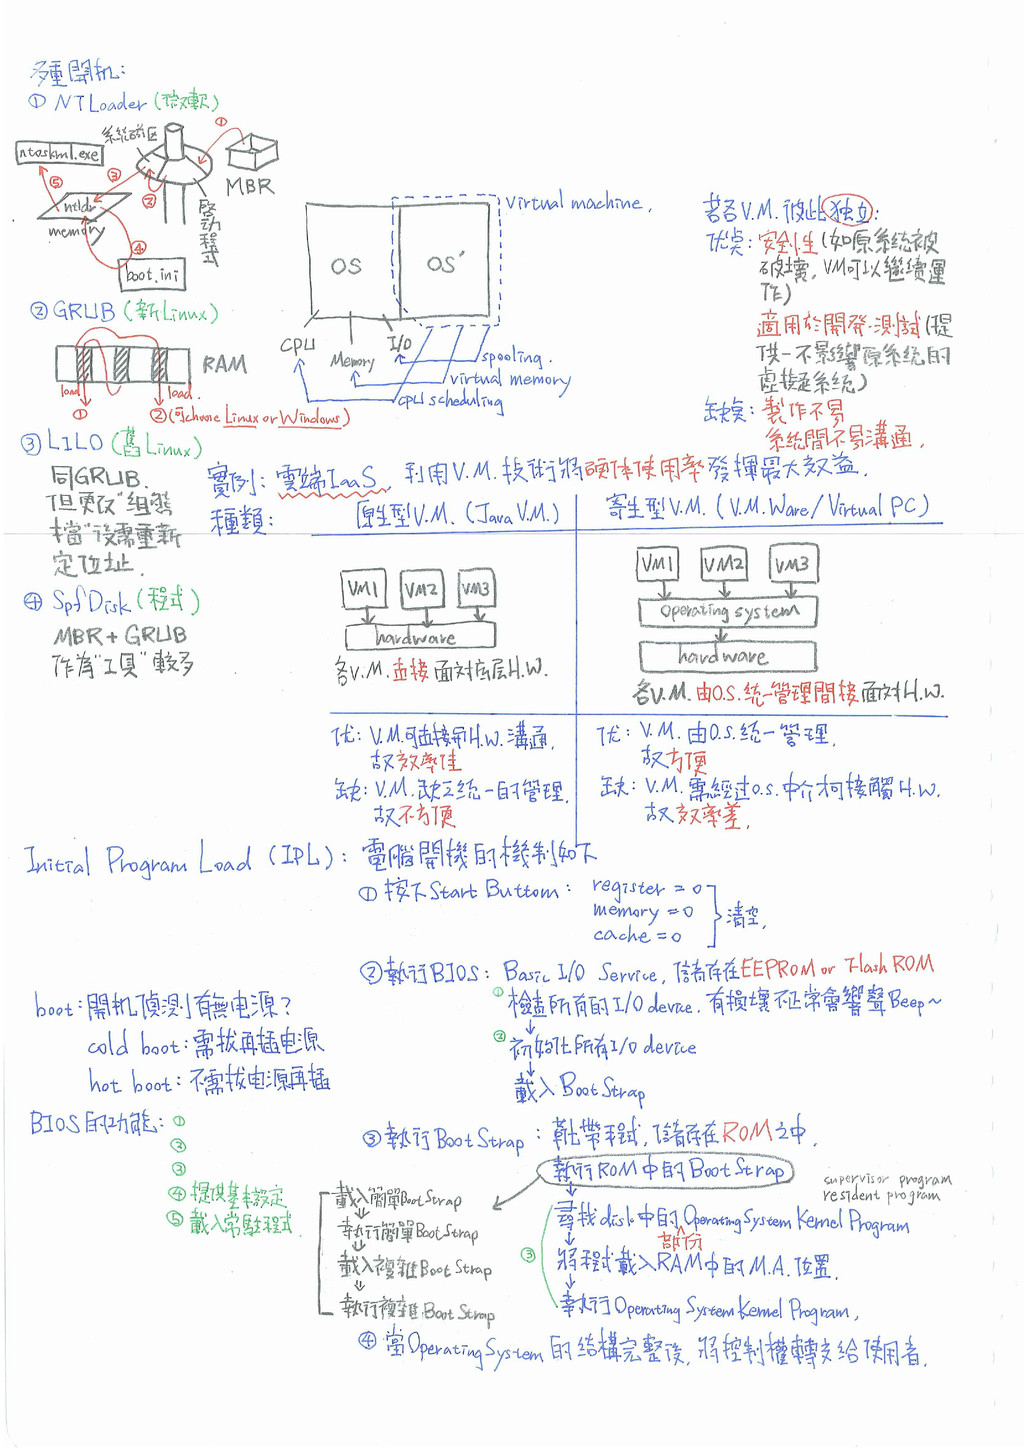 多重開机:
① NTLoader (微軟)
系統磁区
①
ntoskrnl.exe
③
②
⑤
MBR
ntldr
memory
④
啓动程式
boot.ini
② GRUB (新Linux)
RAM
load
load.
①
② (可choose Linux or Windows)
③ LILO (舊Linux)
同GRUB.
但更改"組態
檔"後需重新
定位址.
④ SpfDisk (程式)
MBR + GRUB
作為"工具"較多
Virtual machine.
OS
OS'
CPU
Memory
I/O
spooling.
virtual memory
CPU scheduling
若各V.M.彼此獨立:
优点: 安全性(如原系統被
破壞, VM可以繼續運
作)
適用於開発.測試(提
供一不影響原系統的
虛擬系統)
缺点: 製作不易
系統間不易溝通.
實例: 雲端IaaS, 利用V.M.技術將硬体使用率發揮最大效益.
種類:
原生型V.M. (Java V.M.)
寄生型V.M. (V.M.Ware/Virtual PC)
VM1 VM2 VM3
hardware
各V.M.直接面対底层H.W.
VM1 VM2 VM3
Operating system
hardware
各V.M.由O.S.統一管理間接面対H.W.
优: V.M.可直接和H.W.溝通,
故效率佳
缺: V.M.缺乏統一的管理,
故不方便
优: V.M.由O.S.統一管理,
故方便
缺: V.M.需經过O.S.中介才可接觸H.W.
故效率差.
Initial Program Load (IPL): 電腦開機的機制如下
① 按下Start Buttom: register = 0
memory = 0
cache = 0
清空.
② 執行BIOS: Basic I/O Service, 儲存在EEPROM or Flash ROM
① 檢查所有的I/O device. 有損壞不正常會響聲Beep~
② 初始化所有I/O device
載入 Boot Strap
boot: 開机偵測有無电源?
cold boot: 需拔再插电源
hot boot: 不需拔电源再插
BIOS的功能: ①
②
③
④ 提供基本設定
⑤ 載入常駐程式
③ 執行Boot Strap: 靴帶程式, 儲存在ROM之中.
執行ROM中的Boot Strap
supervisor program
resident program
尋找disk中的Operating System Kernel Program
部份
③
將程式載入RAM中的M.A.位置.
執行Operating System Kernel Program.
載入簡單Boot Strap
執行簡單Boot Strap
載入複雜Boot Strap
執行複雜Boot Strap
④ 當Operating System的結構完整後, 將控制權轉交給使用者.